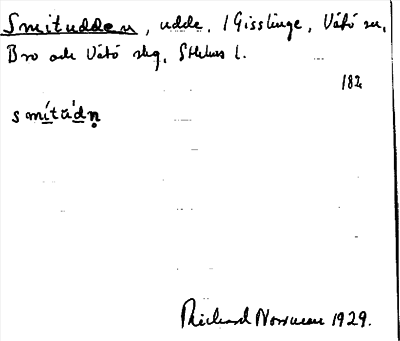 Smitudden, udde, /Gisslinge, Vätö sn,
Bro och Vätö skg, Sthlms l.
182
smítŭ́dn̥
Richard Norrman 1929.